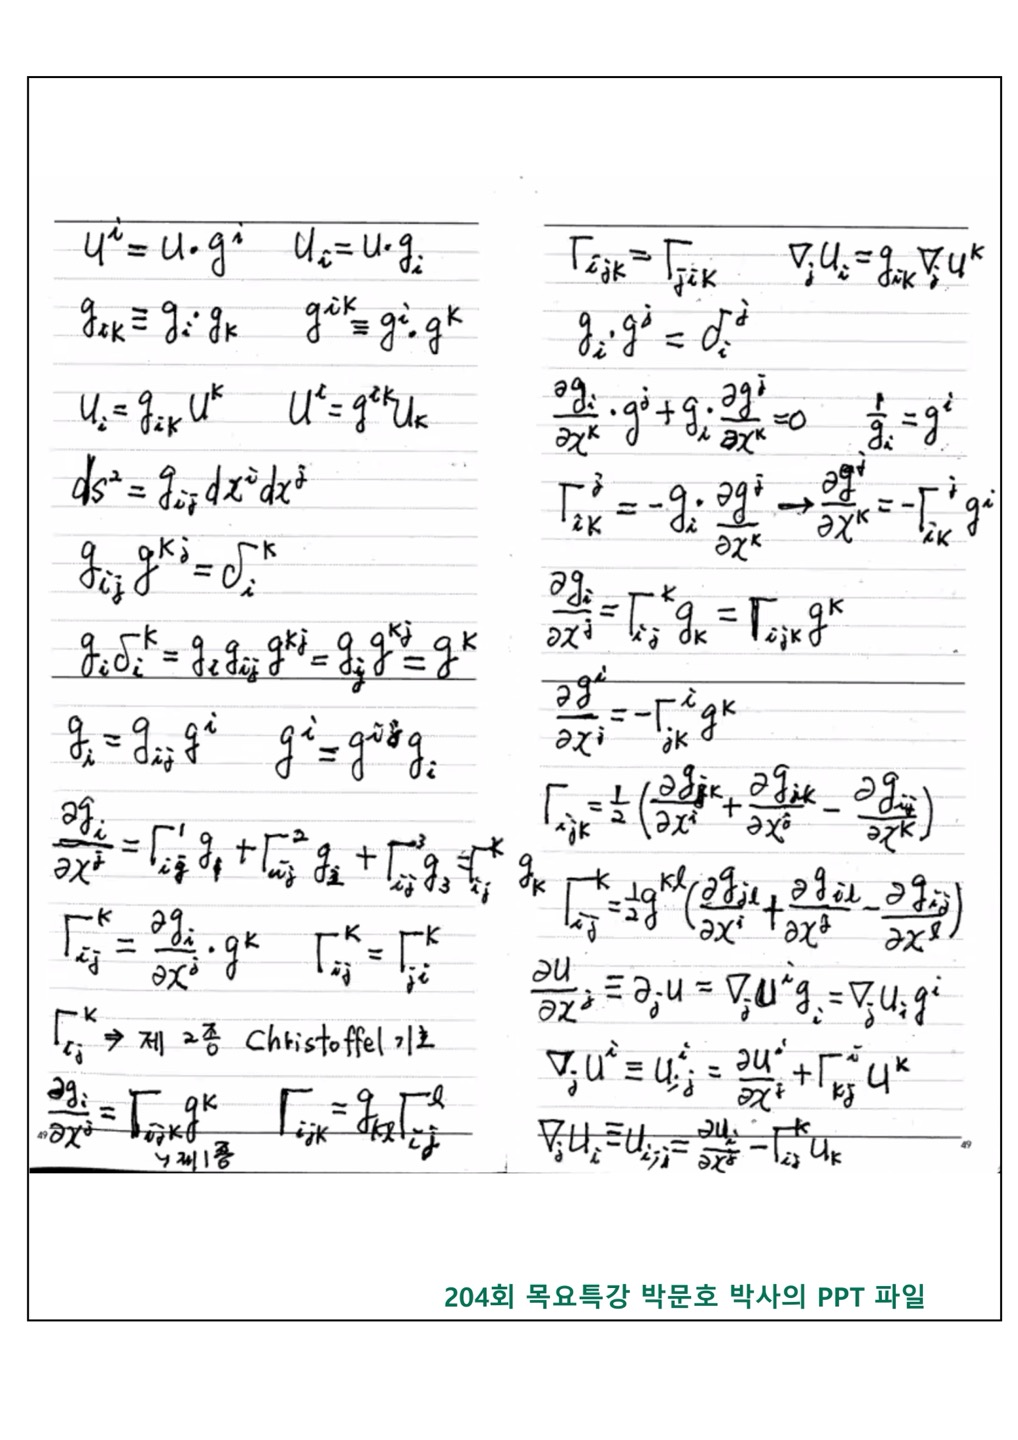 uⁱ = u · gⁱ    uᵢ = u · gᵢ
gᵢₖ ≡ gᵢ · gₖ    gⁱᵏ ≡ gⁱ · gᵏ
uᵢ = gᵢₖ uᵏ    uⁱ = gⁱᵏ uₖ
ds² = g_{ij} dxⁱ dxʲ
g_{ij} g^{kj} = δᵢᵏ
gᵢ δᵢᵏ = gᵢ g_{ij} g^{kj} = g_j g^{kj} = gᵏ
gᵢ = g_{ij} gⁱ    gⁱ = g^{ij} gᵢ
∂gᵢ/∂xʲ = Γ_{ij}^1 g₁ + Γ_{ij}^2 g₂ + Γ_{ij}^3 g₃ = Γ_{ij}^k gₖ
Γ_{ij}^k = ∂gᵢ/∂xʲ · gᵏ    Γ_{ij}^k = Γ_{ji}^k
Γ_{ij}^k ⇒ 제 2종 Christoffel 기호
∂gᵢ/∂xʲ = Γ_{ijk} gᵏ    Γ_{ijk} = g_{kl} Γ_{ij}^l
↳ 제1종
49
Γ_{ijk} = Γ_{jik}    ∇_j uᵢ = gᵢₖ ∇_j uᵏ
gᵢ · gʲ = δᵢʲ
∂gᵢ/∂xᵏ · gʲ + gᵢ · ∂gʲ/∂xᵏ = 0    1/gᵢ = gⁱ
Γ_{ik}^j = -gᵢ · ∂gʲ/∂xᵏ → ∂gʲ/∂xᵏ = -Γ_{ik}^j gⁱ
∂gᵢ/∂xʲ = Γ_{ij}^k gₖ = Γ_{ijk} gᵏ
∂gⁱ/∂xʲ = -Γ_{jk}^i gᵏ
Γ_{ijk} = 1/2 (∂g_{jk}/∂xⁱ + ∂g_{ik}/∂xʲ - ∂g_{ij}/∂xᵏ)
Γ_{ij}^k = 1/2 g^{kl} (∂g_{jl}/∂xⁱ + ∂g_{il}/∂xʲ - ∂g_{ij}/∂xˡ)
∂u/∂xʲ ≡ ∂_j u = ∇_j uⁱ gᵢ = ∇_j uᵢ gⁱ
∇_j uⁱ ≡ u^i_{,j} = ∂uⁱ/∂xʲ + Γ_{kj}^i uᵏ
∇_j uᵢ ≡ u_{i,j} = ∂uᵢ/∂xʲ - Γ_{ij}^k uₖ
49
204회 목요특강 박문호 박사의 PPT 파일